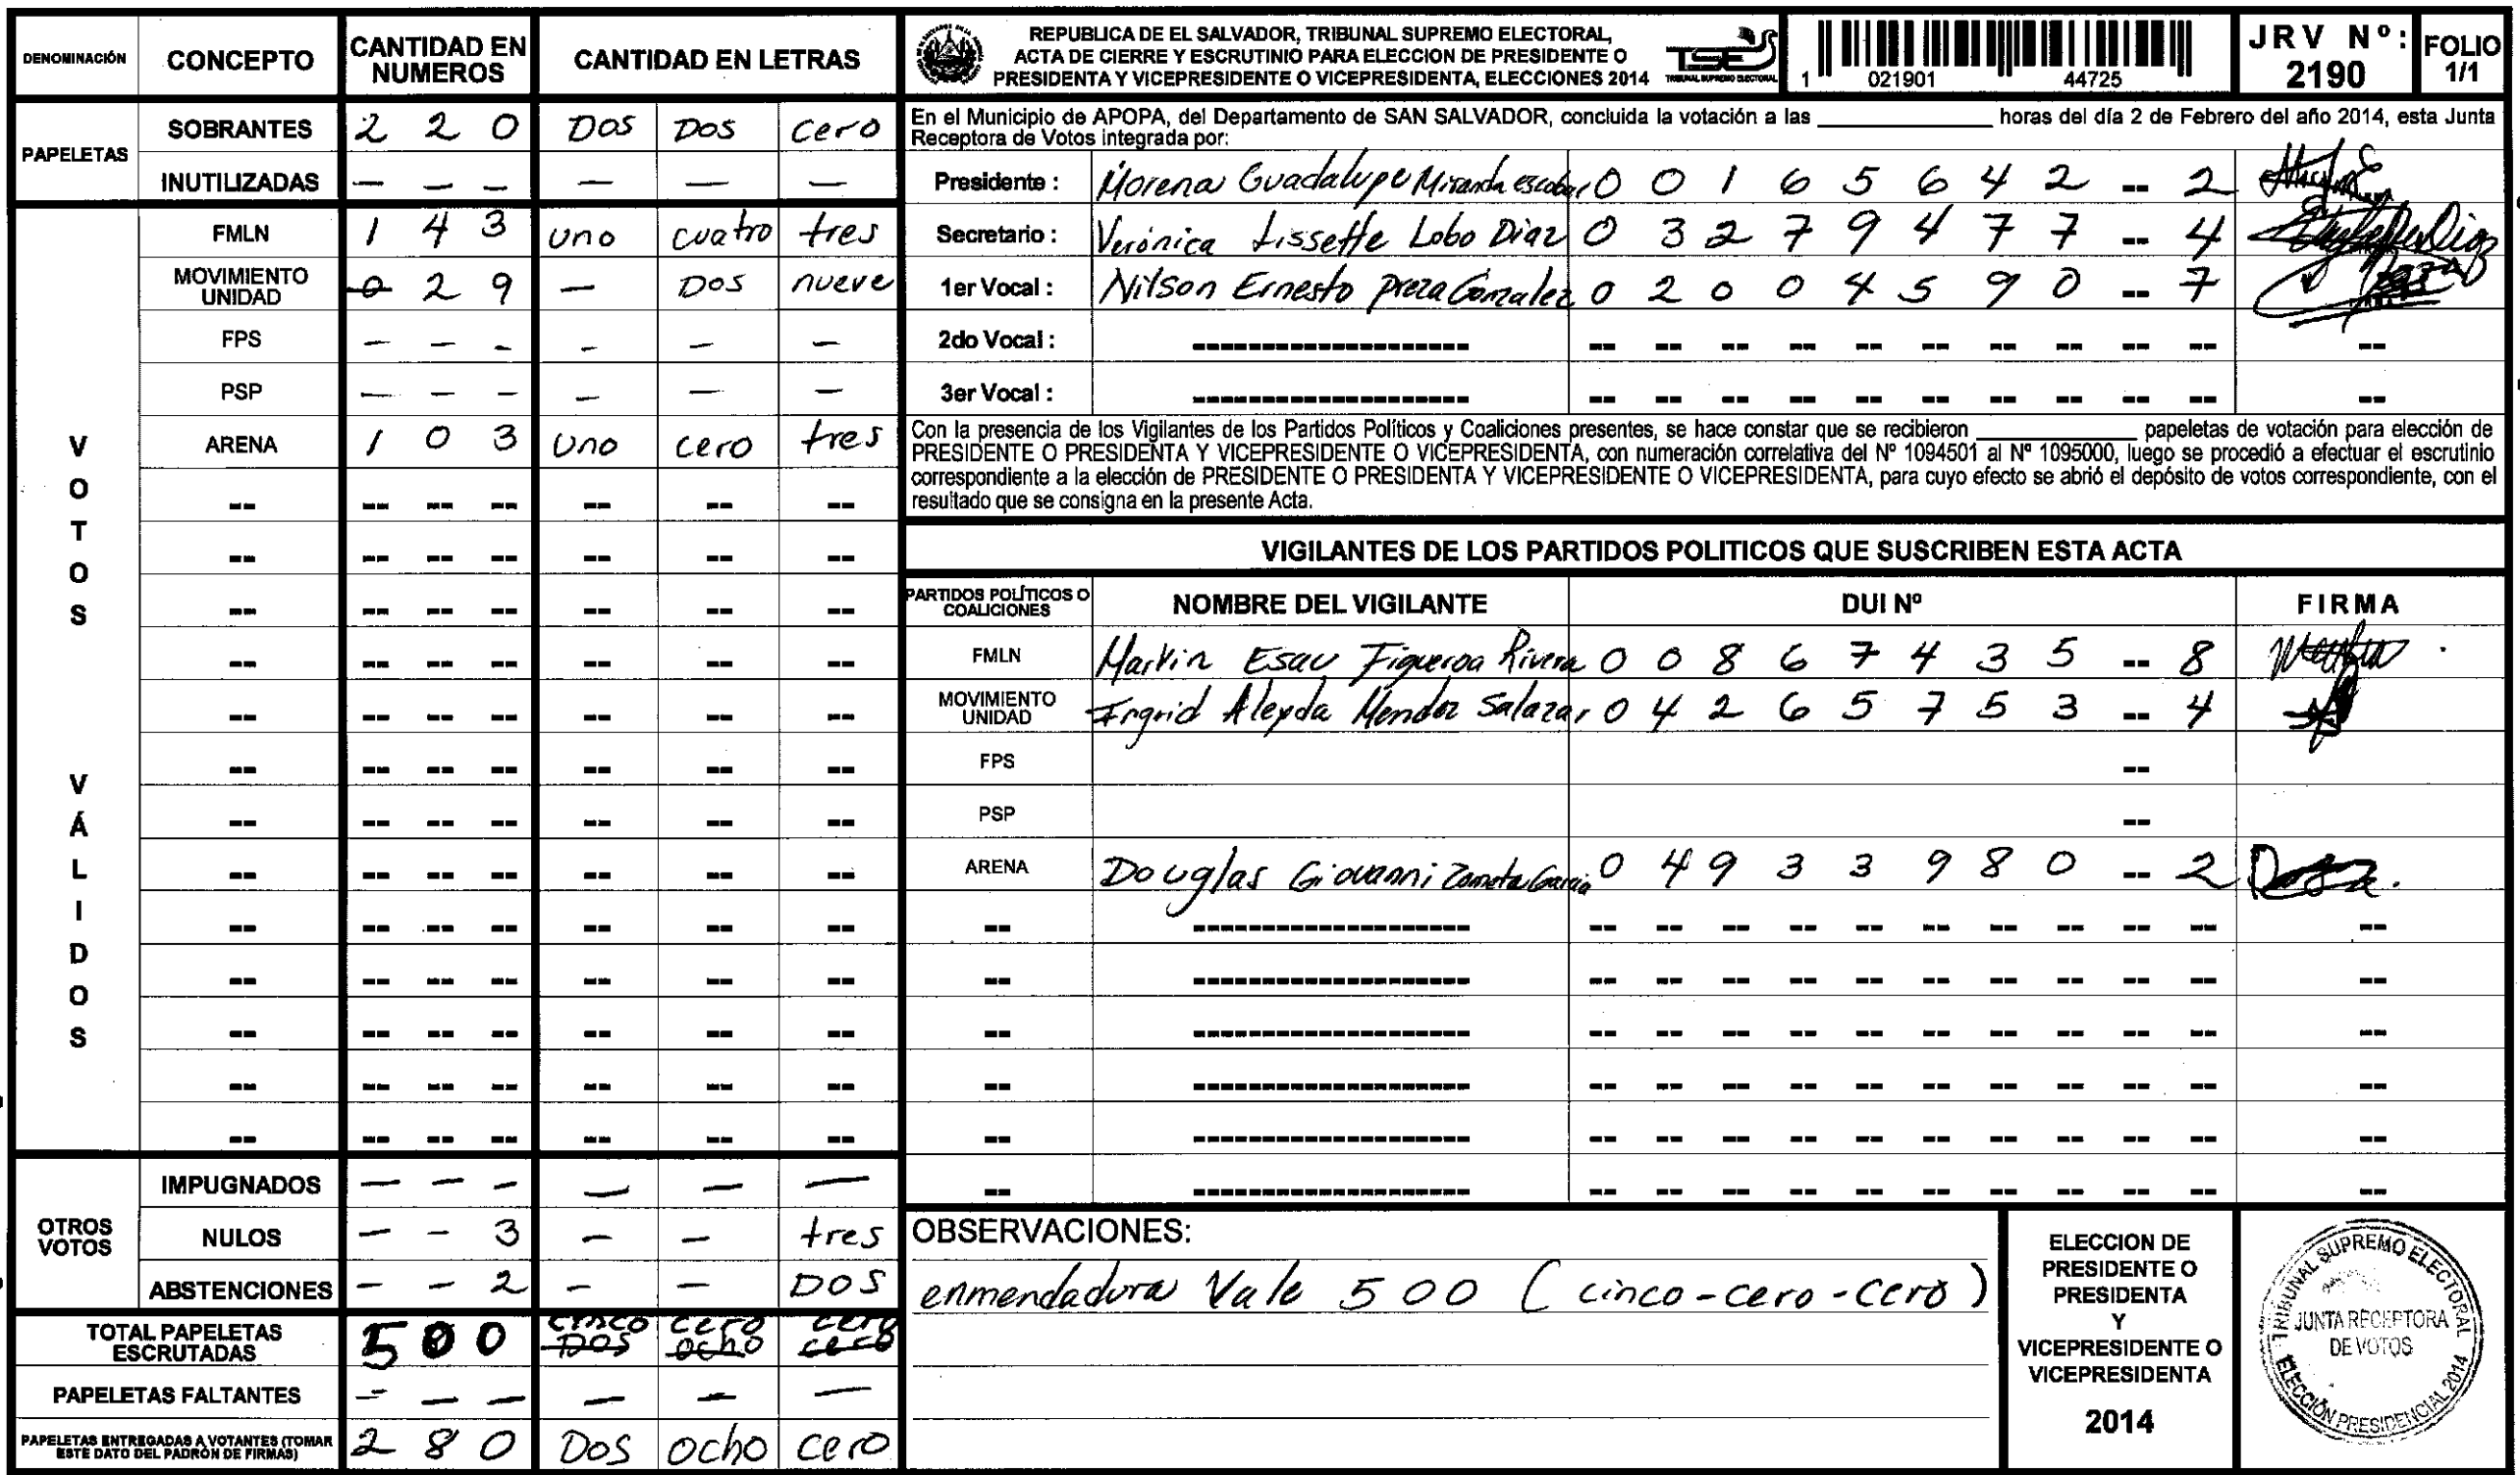 DENOMINACIÓN CONCEPTO CANTIDAD EN NUMEROS CANTIDAD EN LETRAS
PAPELETAS
SOBRANTES 2 2 0 DOS DOS cero
INUTILIZADAS — — — — — —
VOTOS VÁLIDOS
FMLN 1 4 3 uno cuatro tres
MOVIMIENTO UNIDAD 0 2 9 — DOS nueve
FPS — — — — — —
PSP — — — — — —
ARENA 1 0 3 uno cero tres
-- -- -- -- -- -- --
-- -- -- -- -- -- --
-- -- -- -- -- -- --
-- -- -- -- -- -- --
-- -- -- -- -- -- --
-- -- -- -- -- -- --
-- -- -- -- -- -- --
-- -- -- -- -- -- --
-- -- -- -- -- -- --
-- -- -- -- -- -- --
-- -- -- -- -- -- --
-- -- -- -- -- -- --
-- -- -- -- -- -- --
OTROS VOTOS
IMPUGNADOS — — — — — —
NULOS — — 3 — — tres
ABSTENCIONES — — 2 — — DOS
TOTAL PAPELETAS ESCRUTADAS 5 0 0 cinco cero cero
DOS ocho cero
PAPELETAS FALTANTES — — — — — —
PAPELETAS ENTREGADAS A VOTANTES (TOMAR ESTE DATO DEL PADRÓN DE FIRMAS) 2 8 0 DOS ocho cero
REPUBLICA DE EL SALVADOR, TRIBUNAL SUPREMO ELECTORAL,
ACTA DE CIERRE Y ESCRUTINIO PARA ELECCION DE PRESIDENTE O
PRESIDENTA Y VICEPRESIDENTE O VICEPRESIDENTA, ELECCIONES 2014
TSE
TRIBUNAL SUPREMO ELECTORAL
1 021901 44725
JRV Nº: 2190
FOLIO 1/1
En el Municipio de APOPA, del Departamento de SAN SALVADOR, concluida la votación a las ____________ horas del día 2 de Febrero del año 2014, esta Junta
Receptora de Votos integrada por:
Presidente : Morena Guadalupe Miranda escobar 0 0 1 6 5 6 4 2 -- 2
Secretario : Verónica Lissette Lobo Diaz 0 3 2 7 9 4 7 7 -- 4
1er Vocal : Nilson Ernesto preza Gonzalez 0 2 0 0 4 5 9 0 -- 7
2do Vocal : -------------------- -- -- -- -- -- -- -- -- -- -- --
3er Vocal : -------------------- -- -- -- -- -- -- -- -- -- -- --
Con la presencia de los Vigilantes de los Partidos Políticos y Coaliciones presentes, se hace constar que se recibieron ____________ papeletas de votación para elección de
PRESIDENTE O PRESIDENTA Y VICEPRESIDENTE O VICEPRESIDENTA, con numeración correlativa del Nº 1094501 al Nº 1095000, luego se procedió a efectuar el escrutinio
correspondiente a la elección de PRESIDENTE O PRESIDENTA Y VICEPRESIDENTE O VICEPRESIDENTA, para cuyo efecto se abrió el depósito de votos correspondiente, con el
resultado que se consigna en la presente Acta.
VIGILANTES DE LOS PARTIDOS POLITICOS QUE SUSCRIBEN ESTA ACTA
PARTIDOS POLÍTICOS O COALICIONES NOMBRE DEL VIGILANTE DUI Nº FIRMA
FMLN Marvin Esau Figueroa Rivera 0 0 8 6 7 4 3 5 -- 8
MOVIMIENTO UNIDAD Ingrid Aleyda Mendez Salazar 0 4 2 6 5 7 5 3 -- 4
FPS --
PSP --
ARENA Douglas Giovanni Zometa Garcia 0 4 9 3 3 9 8 0 -- 2
-- -------------------- -- -- -- -- -- -- -- -- -- -- --
-- -------------------- -- -- -- -- -- -- -- -- -- -- --
-- -------------------- -- -- -- -- -- -- -- -- -- -- --
-- -------------------- -- -- -- -- -- -- -- -- -- -- --
-- -------------------- -- -- -- -- -- -- -- -- -- -- --
-- -------------------- -- -- -- -- -- -- -- -- -- -- --
OBSERVACIONES:
enmendadura Vale 500 (cinco-cero-cero)
ELECCION DE
PRESIDENTE O
PRESIDENTA
Y
VICEPRESIDENTE O
VICEPRESIDENTA
2014
TRIBUNAL SUPREMO ELECTORAL
JUNTA RECEPTORA
DE VOTOS
ELECCIÓN PRESIDENCIAL 2014